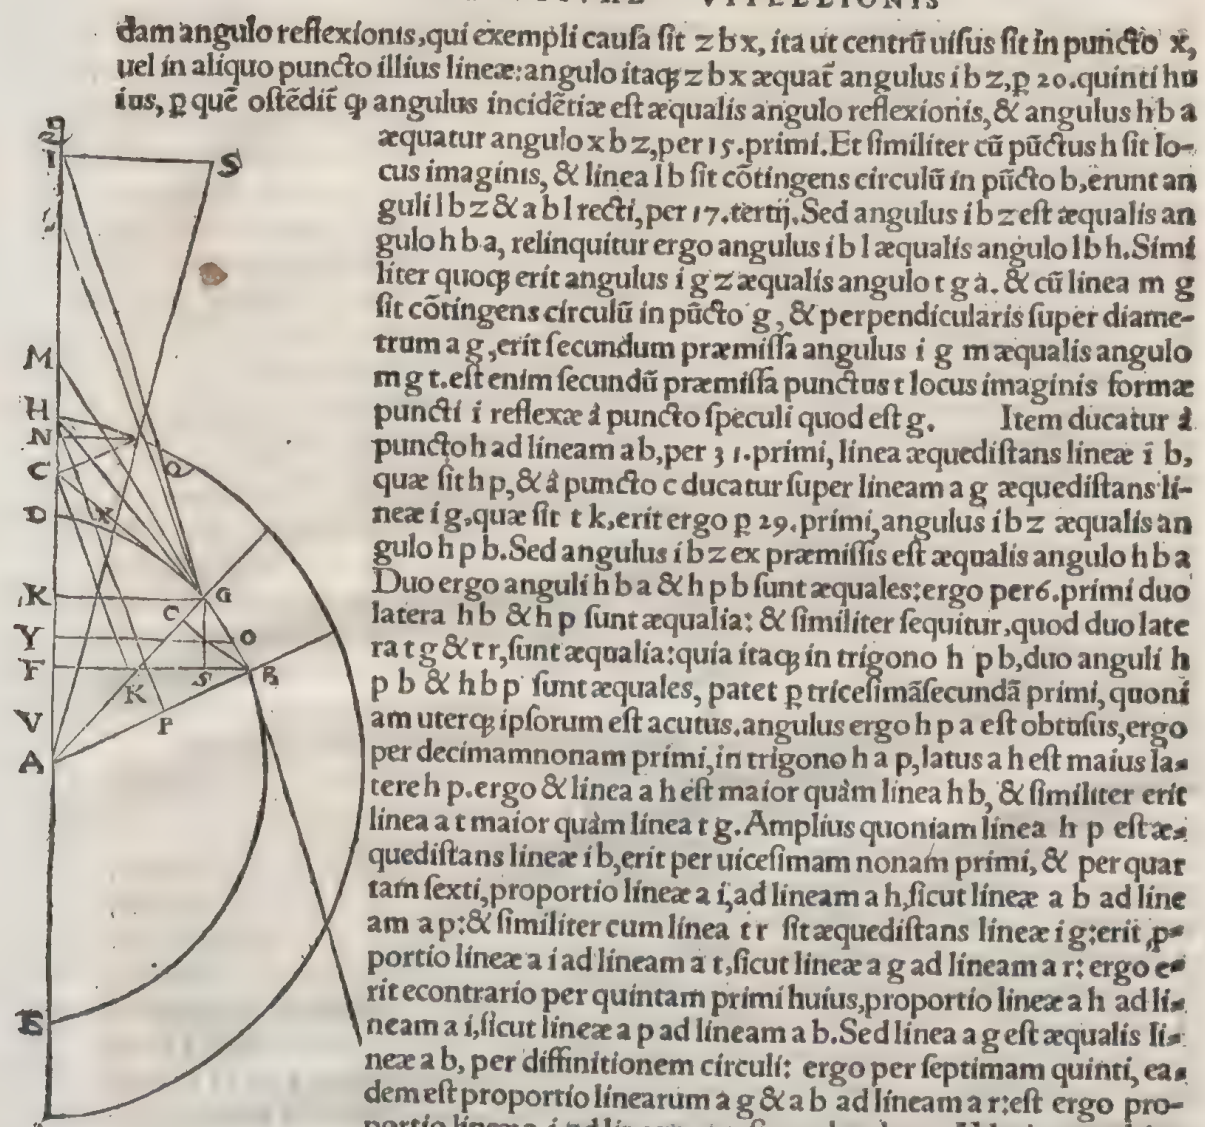 VITELLIONIS
dam angulo reflexionis, qui exempli cauſa ſit z b x, ita ut centrũ uiſus ſit in puncto x,
uel in aliquo puncto illius lineæ: angulo itaqꝫ z b x æquat̃ angulus i b z, ꝑ 20. quinti hu
ius, ꝑ quẽ oſtẽdit̃ ꝙ angulus incidẽtiæ eſt æqualis angulo reflexionis, & angulus h b a
æquatur angulo x b z, per 15. primi. Et ſimiliter cũ pũctus h ſit lo-
cus imaginis, & linea l b ſit cõtingens circulũ in pũcto b, erunt an
guli l b z & a b l recti, per 17. tertij. Sed angulus i b z eſt æqualis an
gulo h b a, relinquitur ergo angulus i b l æqualis angulo l b h. Simi
liter quoqꝫ erit angulus i g z æqualis angulo t g a. & cũ linea m g
ſit cõtingens circulũ in pũcto g, & perpendicularis ſuper diame-
trum a g, erit ſecundum præmiſſa angulus i g m æqualis angulo
m g t. eſt enim ſecundũ præmiſſa punctus t locus imaginis formæ
puncti i reflexæ à puncto ſpeculi quod eſt g. Item ducatur à
puncto h ad lineam a b, per 31. primi, linea æquediſtans lineæ i b,
quæ ſit h p, & à puncto c ducatur ſuper lineam a g æquediſtans li-
neæ i g, quæ ſit t k, erit ergo ꝑ 29. primi, angulus i b z æqualis an
gulo h p b. Sed angulus i b z ex præmiſſis eſt æqualis angulo h b a
Duo ergo anguli h b a & h p b ſunt æquales: ergo per 6. primi duo
latera h b & h p ſunt æqualia: & ſimiliter ſequitur, quod duo late
ra t g & t r, ſunt æqualia: quia itaqꝫ in trigono h p b, duo anguli h
p b & h b p ſunt æquales, patet ꝑ triceſimãſecundã primi, quoni
am uterqꝫ ipſorum eſt acutus, angulus ergo h p a eſt obtuſus, ergo
per decimamnonam primi, in trigono h a p, latus a h eſt maius la-
tere h p. ergo & linea a h eſt maior quàm linea h b, & ſimiliter erit
linea a t maior quàm linea t g. Amplius quoniam linea h p eſt æ-
quediſtans lineæ i b, erit per uiceſimam nonam primi, & per quar
tam ſexti, proportio lineæ a i, ad lineam a h, ſicut lineæ a b ad line
am a p: & ſimiliter cum linea t r ſit æquediſtans lineæ i g: erit, p-
portio lineæ a i ad lineam a t, ſicut lineæ a g ad lineam a r: ergo e-
rit econtrario per quintam primi huius, proportio lineæ a h ad li-
neam a i, ſicut lineæ a p ad lineam a b. Sed linea a g eſt æqualis li-
neæ a b, per diffinitionem circuli: ergo per ſeptimam quinti, ea-
dem eſt proportio linearum a g & a b ad lineam a r: eſt ergo pro-
I
S
M
H
N
C
Q
D
X
K
G
C
Y
O
F
K
S
B
V
P
A
E